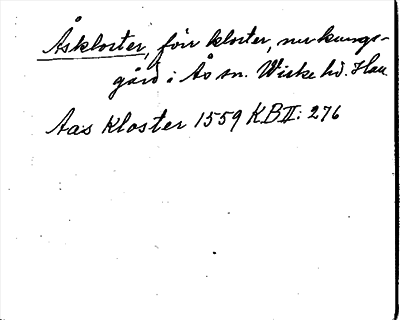 Åskloster, förr kloster, nu kungs-
gård i Ås sn. Wiske hd. Hall
Aas Kloster 1559 KB II: 276